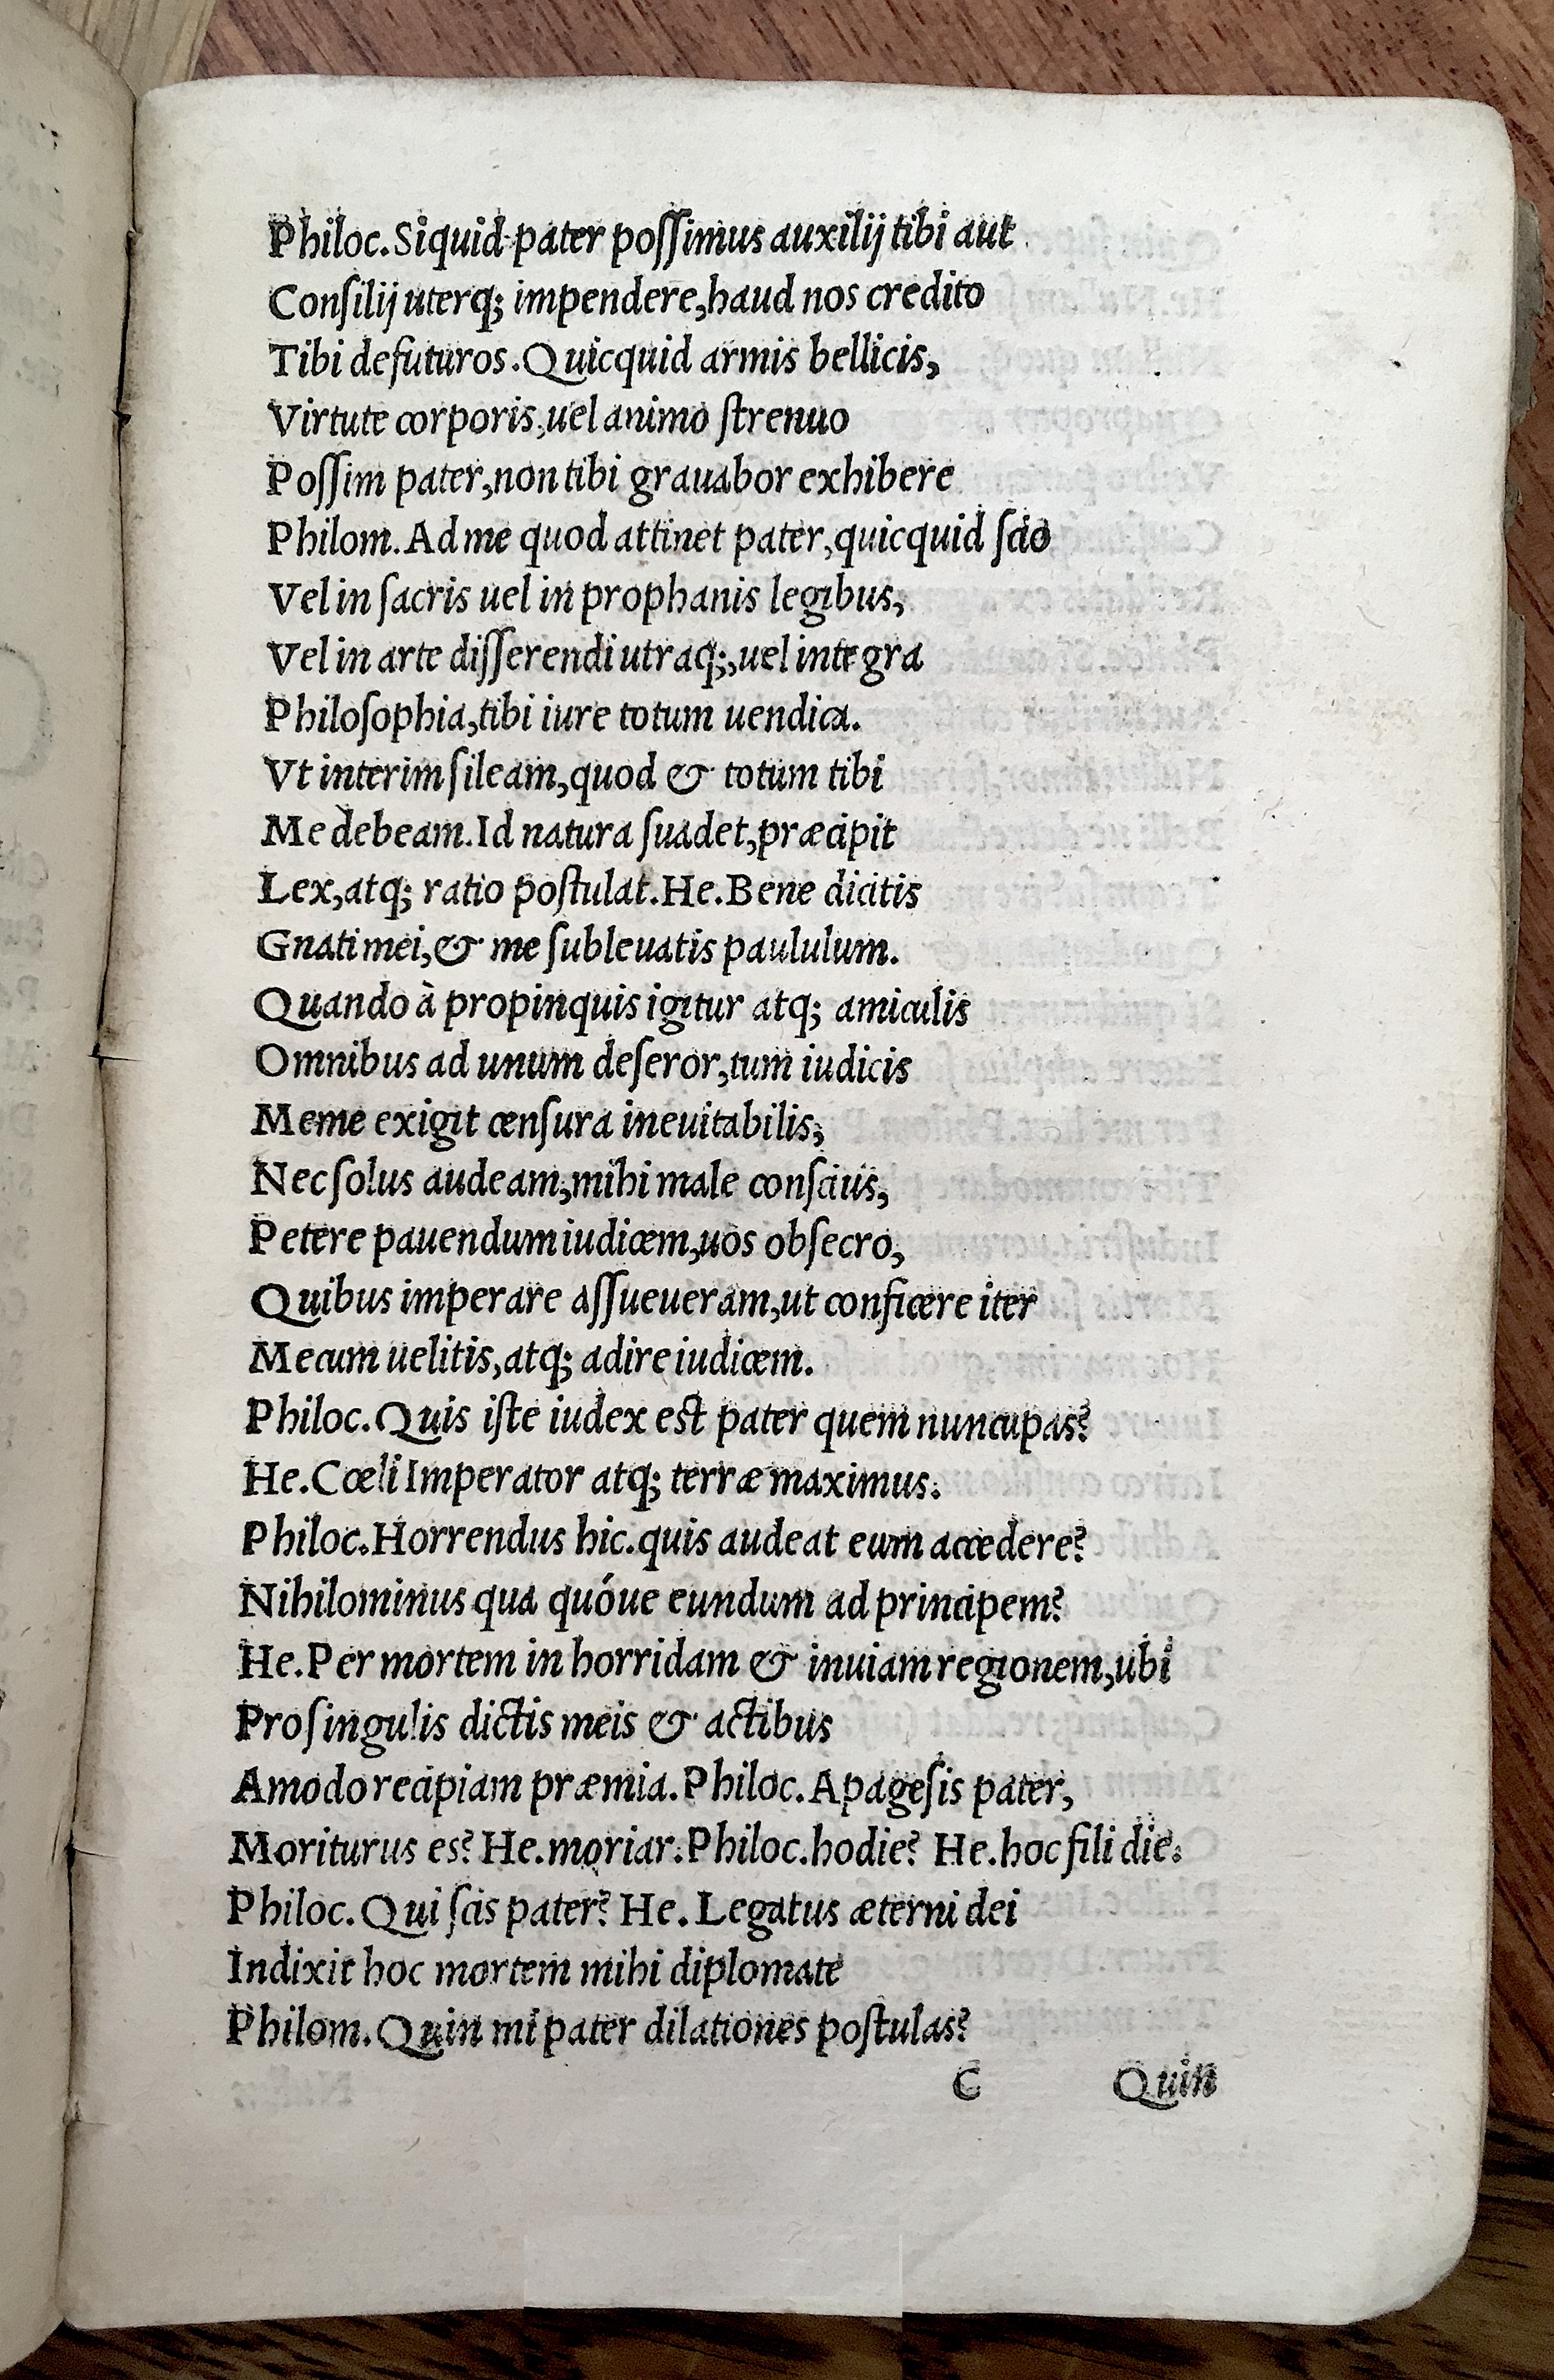 Philoc.Siquid pater poſſimus auxilij tibi aut
Conſilij uterq; impendere,haud nos credito
Tibi defuturos.Quicquid armis bellicis,
Virtute corporis,uel animo ſtrenuo
Poſſim pater,non tibi grauabor exhibere
Philom.Ad me quod attinet pater,quicquid ſcio
Vel in ſacris uel in prophanis legibus,
Vel in arte diſſerendi utraq;,uel integra
Philoſophia,tibi iure totum uendica.
Vt interim ſileam,quod & totum tibi
Me debeam.Id natura ſuadet,præcipit
Lex,atq; ratio poſtulat.He.Bene dicitis
Gnati mei,& me ſubleuatis paululum.
Quando à propinquis igitur atq; amiculis
Omnibus ad unum deſeror,tum iudicis
Meme exigit cenſura ineuitabilis,
Nec ſolus audeam,mihi male conſcius,
Petere pauendum iudicem,uos obſecro,
Quibus imperare aſſueueram,ut conficere iter
Mecum uelitis,atq; adire iudicem.
Philoc.Quis iſte iudex est pater quem nuncupas?
He.Cœli Imperator atq; terræ maximus.
Philoc.Horrendus hic.quis audeat eum accedere?
Nihilominus qua quóue eundum ad principem?
He.Per mortem in horridam & inuiam regionem,ubi
Pro ſingulis dictis meis & actibus
Amodo recipiam præmia.Philoc.Apageſis pater,
Moriturus es? He.moriar.Philoc.hodie? He.hoc fili die.
Philoc.Qui ſcis pater? He. Legatus æterni dei
Indixit hoc mortem mihi diplomate
Philom.Quin mi pater dilationes poſtulas?
C Quin